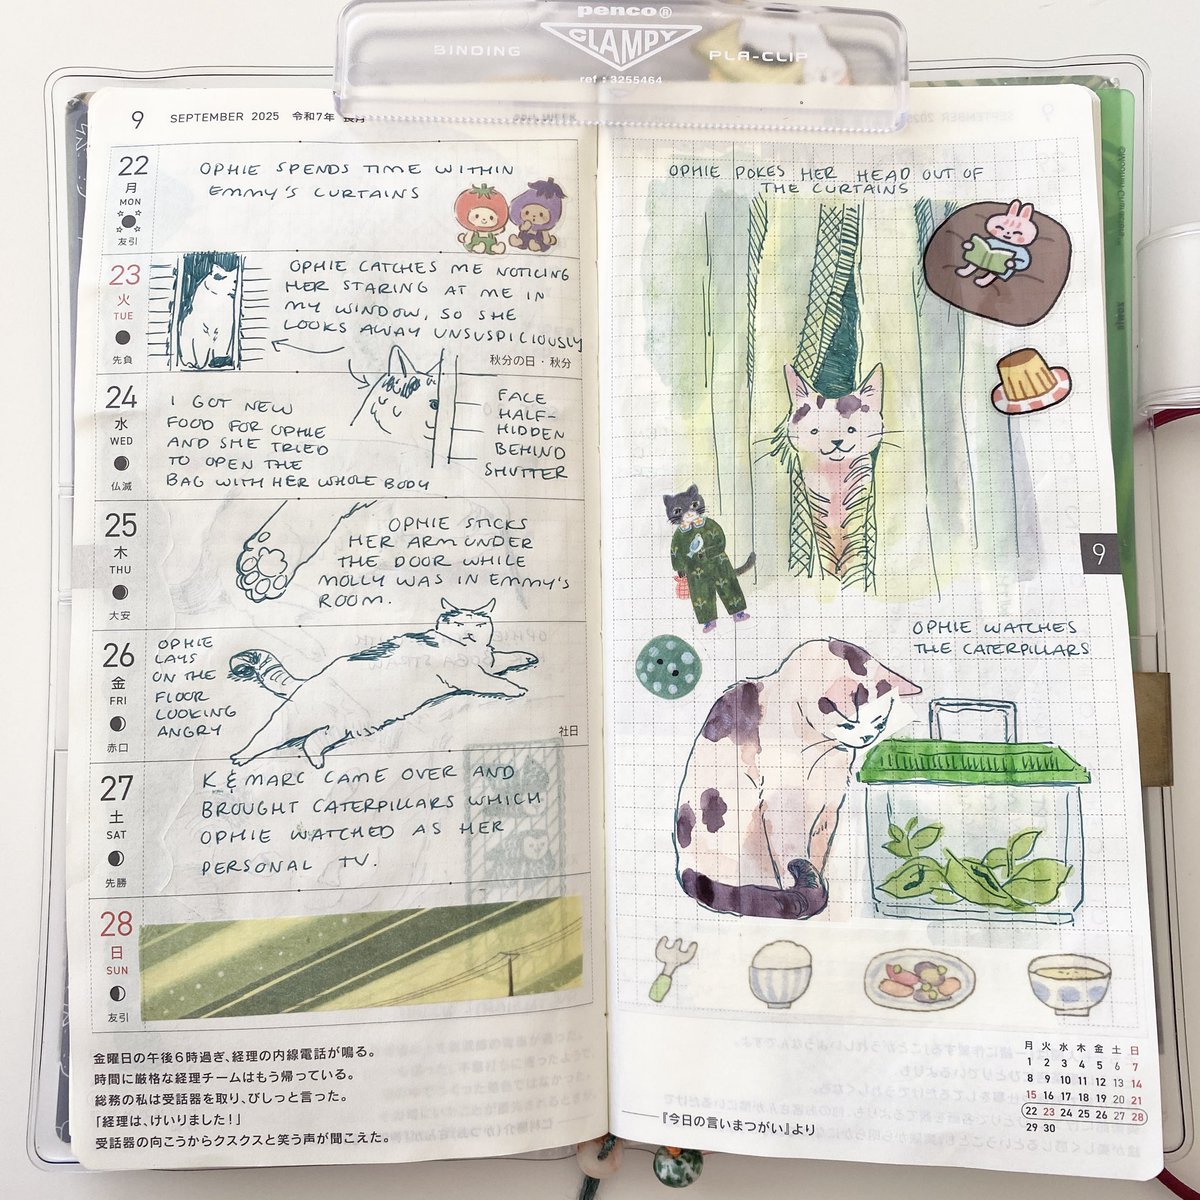 penco®
BINDING CLAMPY PLA-CLIP
ref : 3255464
9 SEPTEMBER 2025 令和7年 長月
22
月
MON
友引
OPHIE SPENDS TIME WITHIN
EMMY'S CURTAINS
23
火
TUE
先負
OPHIE CATCHES ME NOTICING
HER STARING AT ME IN
MY WINDOW, SO SHE
LOOKS AWAY UNSUSPICIOUSLY
秋分の日・秋分
24
水
WED
仏滅
I GOT NEW
FOOD FOR OPHIE
AND SHE TRIED
TO OPEN THE
BAG WITH HER WHOLE BODY
FACE
HALF-
HIDDEN
BEHIND
SHUTTER
25
木
THU
大安
OPHIE STICKS
HER ARM UNDER
THE DOOR WHILE
MOLLY WAS IN EMMY'S
ROOM.
26
金
FRI
赤口
OPHIE
LAYS
ON THE
FLOOR
LOOKING
ANGRY
社日
27
土
SAT
先勝
K & MARC CAME OVER AND
BROUGHT CATERPILLARS WHICH
OPHIE WATCHED AS HER
PERSONAL TV.
28
日
SUN
友引
金曜日の午後6時過ぎ、経理の内線電話が鳴る。
時間に厳格な経理チームはもう帰っている。
総務の私は受話器を取り、びしっと言った。
「経理は、けいりました！」
受話器の向こうからクスクスと笑う声が聞こえた。
OPHIE POKES HER HEAD OUT OF
THE CURTAINS
9
OPHIE WATCHES
THE CATERPILLARS
——『今日の言いまつがい』より
月 火 水 木 金 土 日
1 2 3 4 5 6 7
8 9 10 11 12 13 14
15 16 17 18 19 20 21
22 23 24 25 26 27 28
29 30